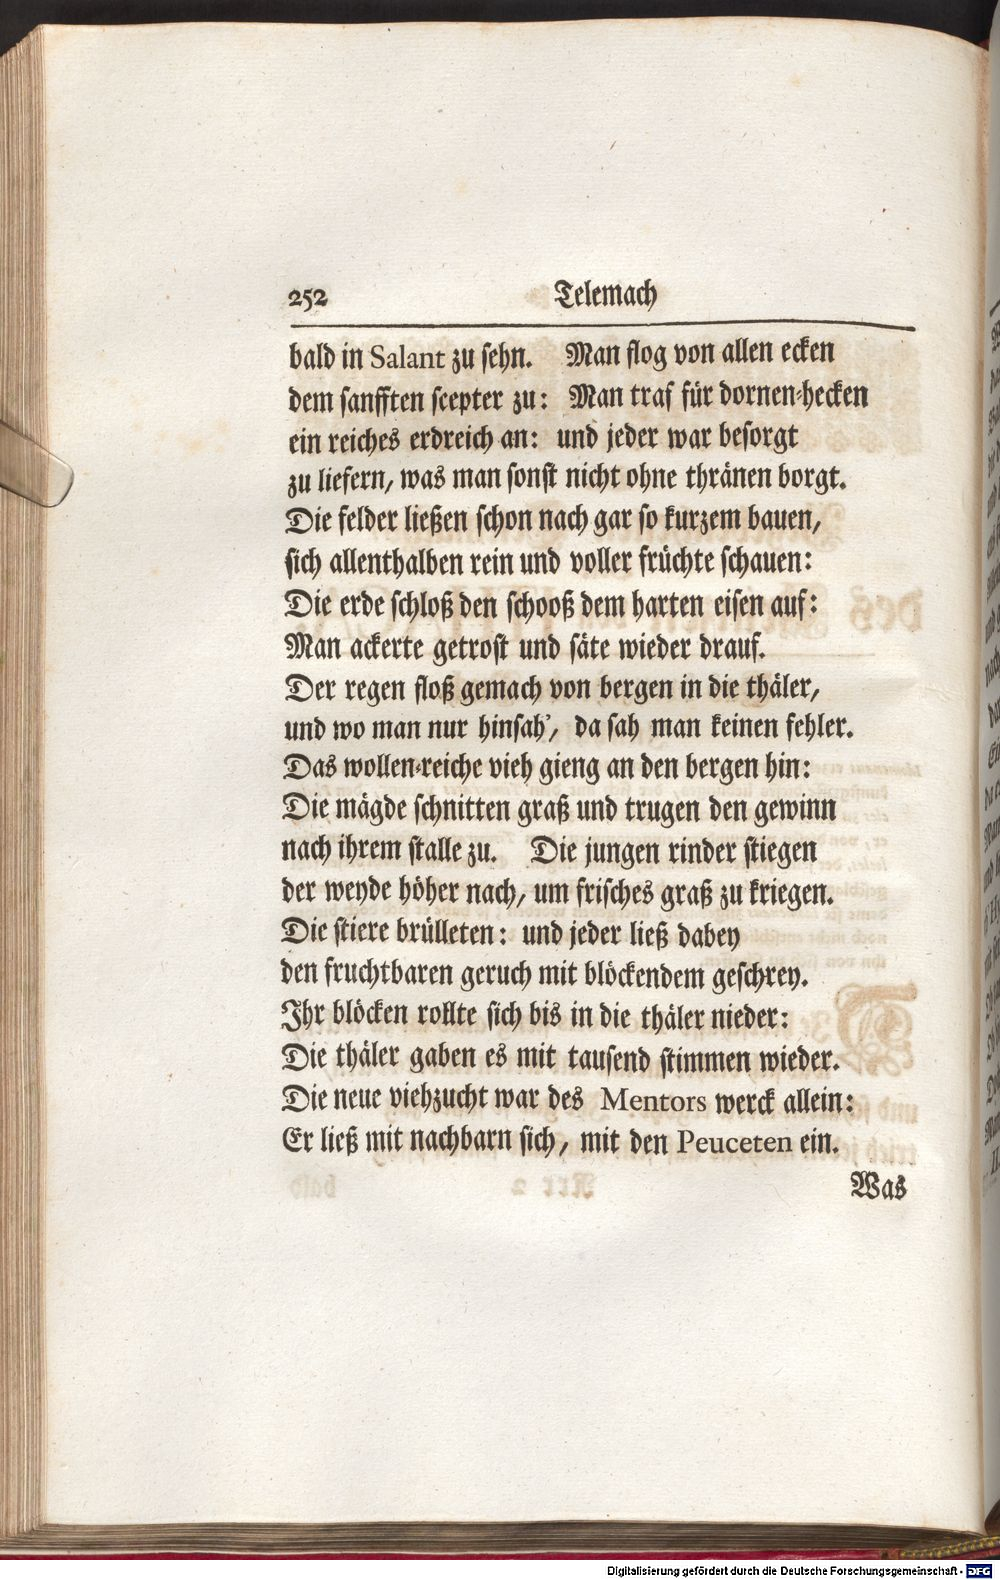 252 Telemach
bald in Salant zu sehn. Man flog von allen ecken
dem sanfften scepter zu: Man traf für dornen-hecken
ein reiches erdreich an: und jeder war besorgt
zu liefern, was man sonst nicht ohne thränen borgt.
Die felder ließen schon nach gar so kurzem bauen,
sich allenthalben rein und voller früchte schauen:
Die erde schloß den schooß dem harten eisen auf:
Man ackerte getrost und säte wieder drauf.
Der regen floß gemach von bergen in die thäler,
und wo man nur hinsah', da sah man keinen fehler.
Das wollen-reiche vieh gieng an den bergen hin:
Die mägde schnitten graß und trugen den gewinn
nach ihrem stalle zu. Die jungen rinder stiegen
der weyde höher nach, um frisches graß zu kriegen.
Die stiere brülleten: und jeder ließ dabey
den fruchtbaren geruch mit blöckendem geschrey.
Ihr blöcken rollte sich bis in die thäler nieder:
Die thäler gaben es mit tausend stimmen wieder.
Die neue viehzucht war des Mentors werck allein:
Er ließ mit nachbarn sich, mit den Peuceten ein.
Was
Digitalisierung gefördert durch die Deutsche Forschungsgemeinschaft - DFG